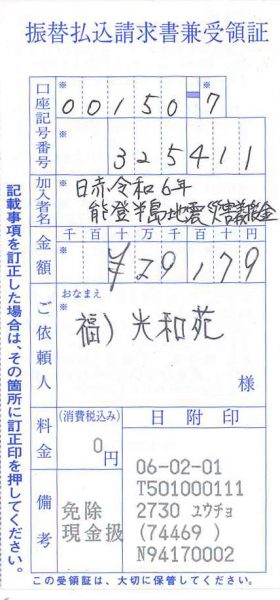 振替払込請求書兼受領証
口座記号番号
※
00150-7
※
325411
加入者名
※
日赤令和6年
能登半島地震災害義援金
金額
千百十万千百十円
※
¥29,179
ご依頼人
おなまえ
※
福)光和苑
様
料金
(消費税込み)
0円
日附印
06-02-01
T501000111
2730 ユウチョ
(74469)
N94170002
備考
免除
現金扱
記載事項を訂正した場合は、その箇所に訂正印を押してください。
この受領証は、大切に保管してください。